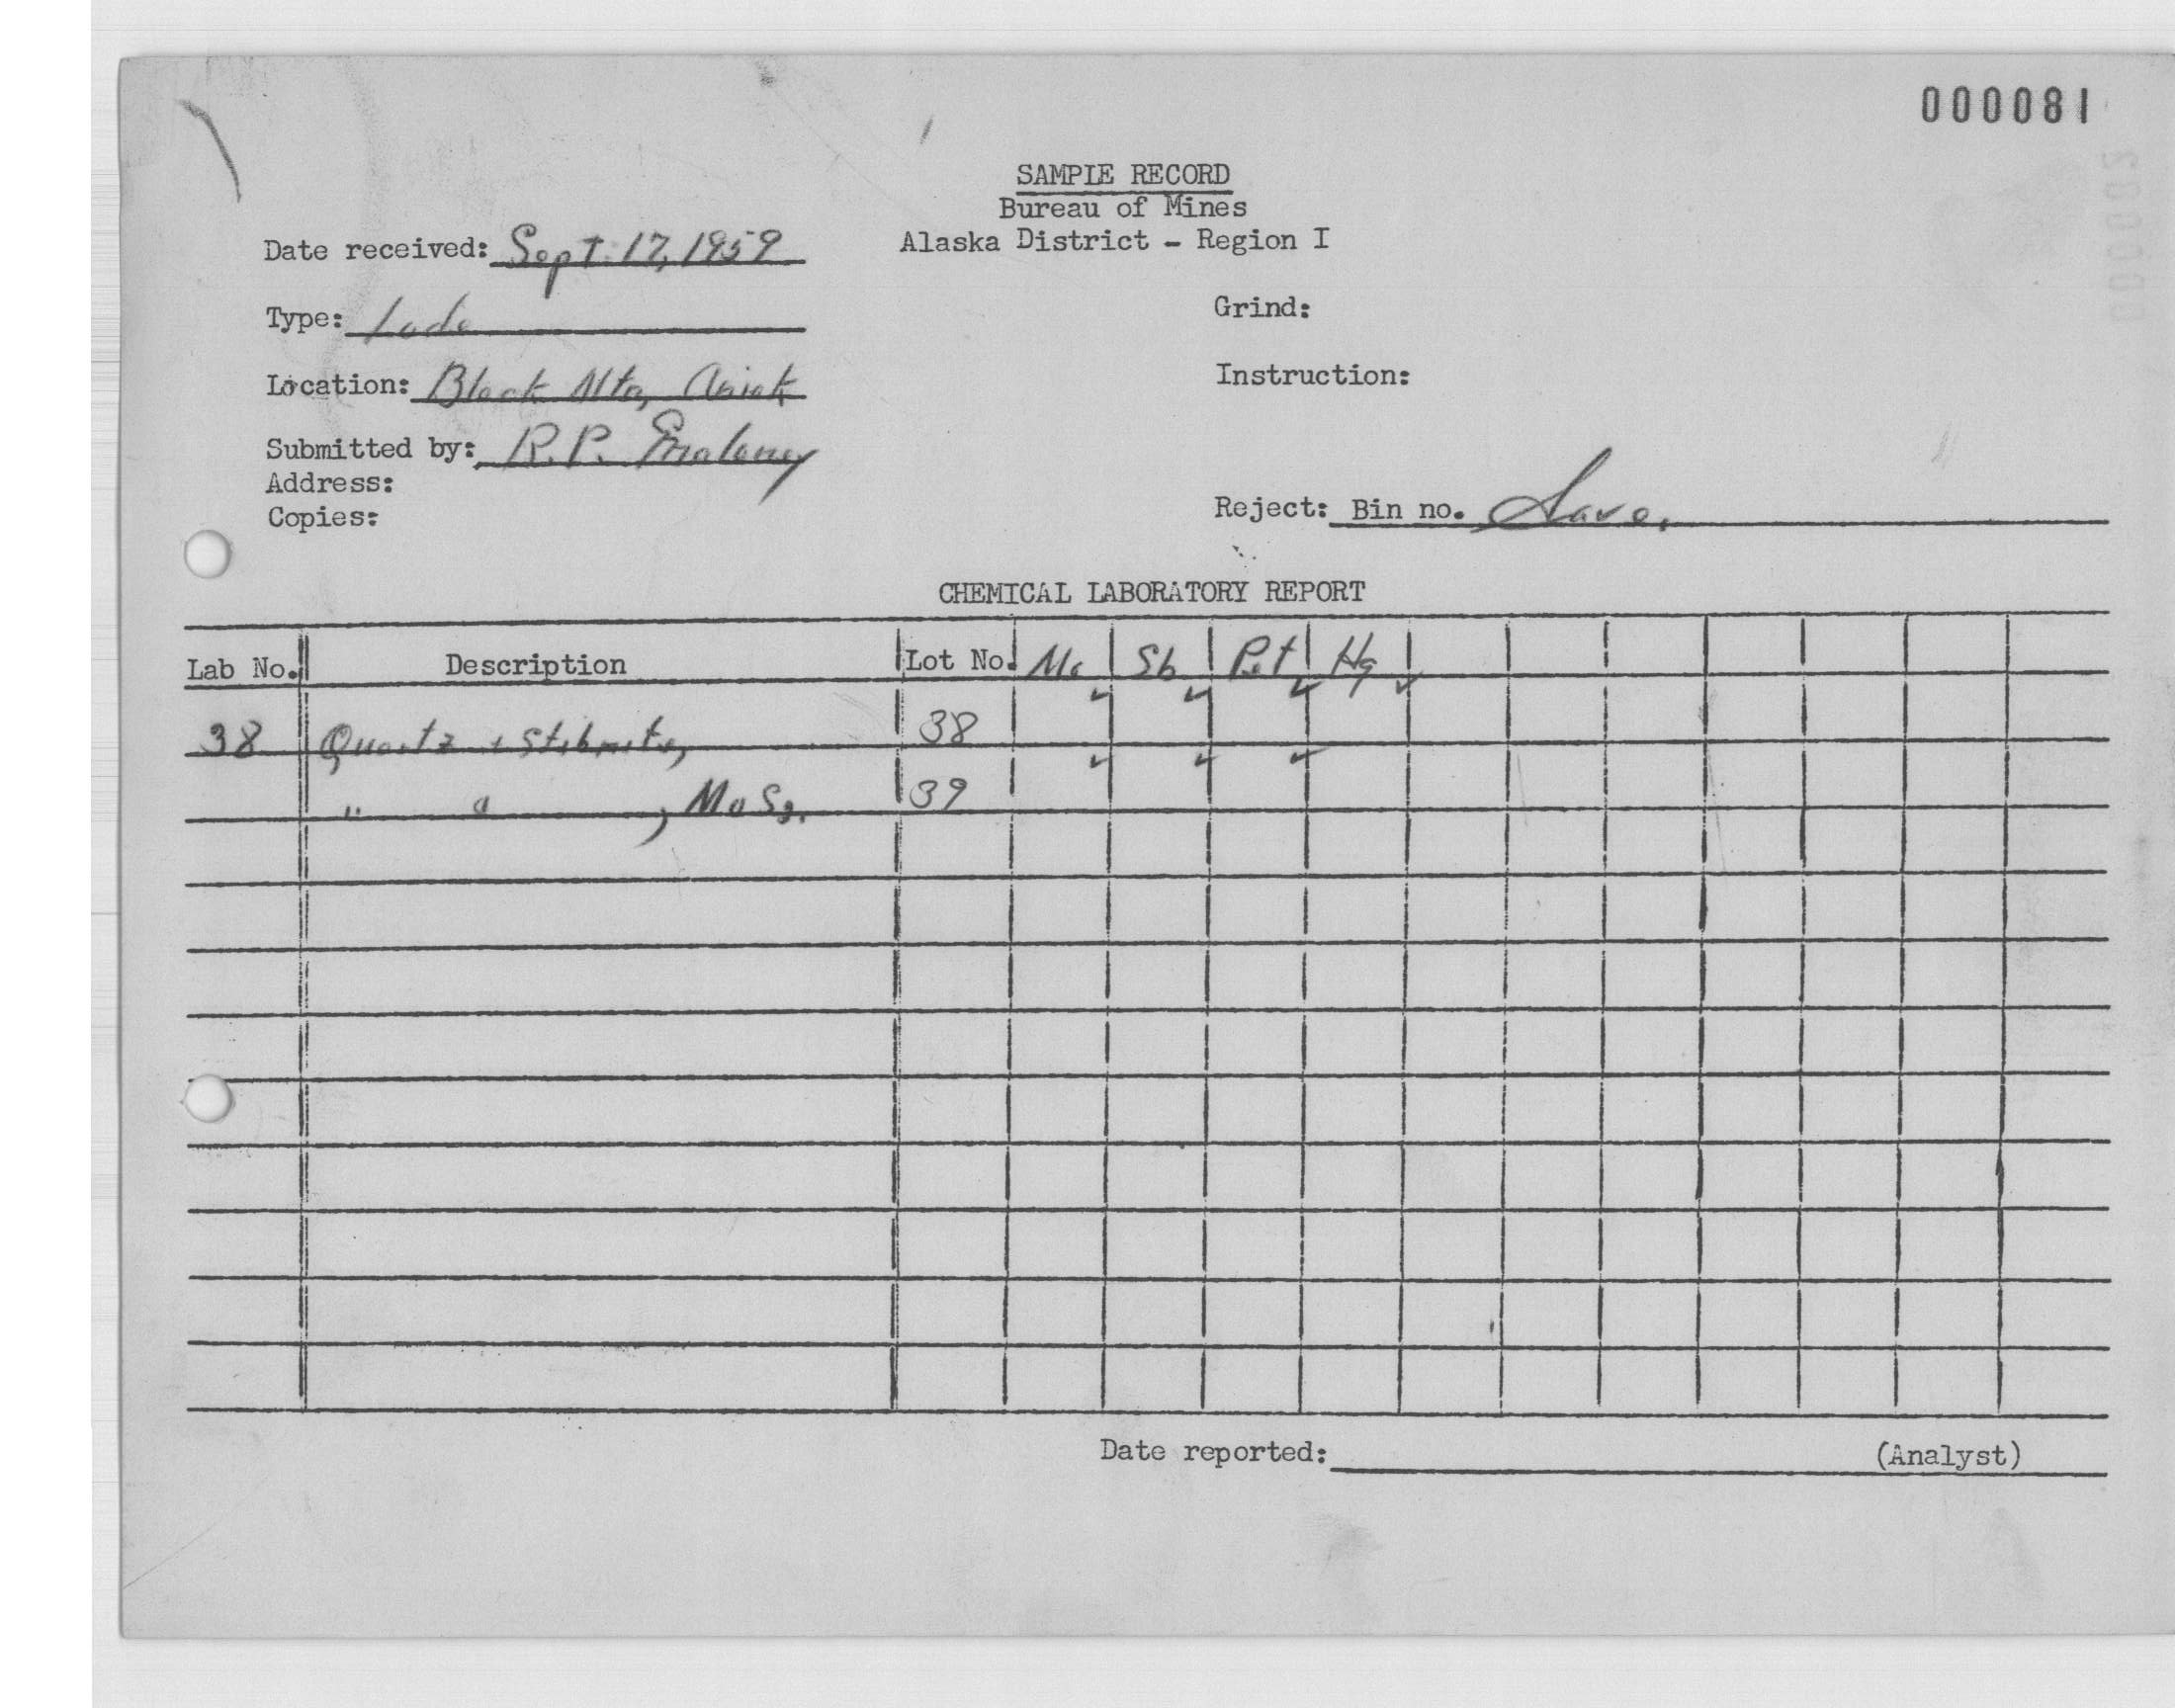 000081
SAMPLE RECORD
Bureau of Mines
Alaska District - Region I
Date received: Sept. 17, 1959
Type: Lode
Grind:
Location: Black Mtn, Aniak
Instruction:
Submitted by: R.P. Maloney
Address:
Reject: Bin no. Save.
Copies:
CHEMICAL LABORATORY REPORT
Lab No. Description Lot No. Mo Sb Pet Hg
38 Quartz + Stibnite, 38 ✓ ✓ ✓ ✓
" " , MoS2. 39 ✓ ✓ ✓
Date reported: (Analyst)